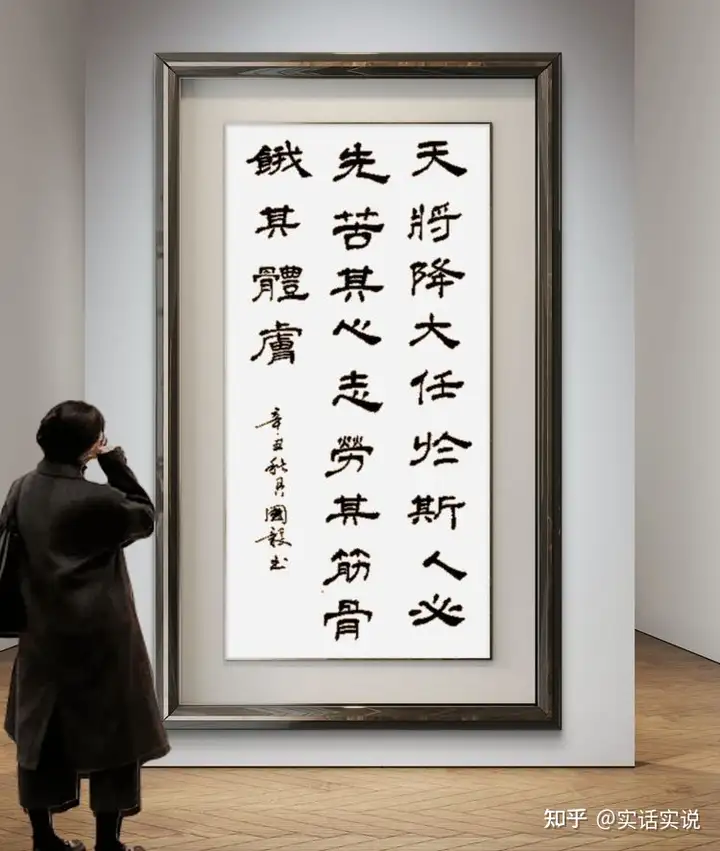 天將降大任於斯人必
先苦其心志勞其筋骨
餓其體膚
辛丑秋月國毅书
知乎 @实话实说